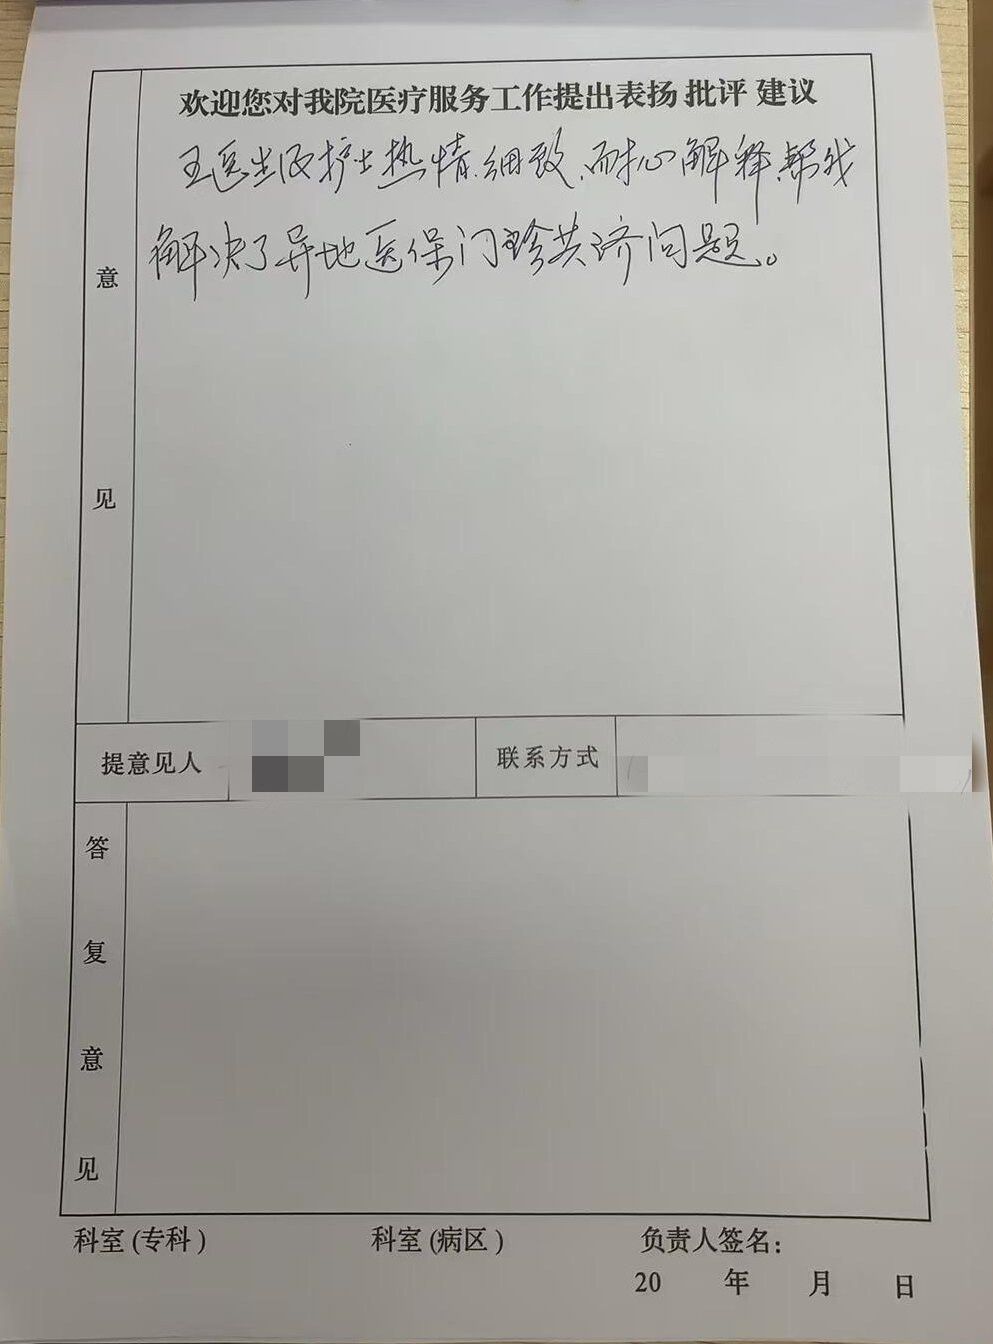 欢迎您对我院医疗服务工作提出表扬 批评 建议
王医生及护士热情、细致、耐心解释,帮我
解决了异地医保门诊共济问题。
意见
提意见人
联系方式
答复意见
科室(专科) 科室(病区) 负责人签名:
20 年 月 日